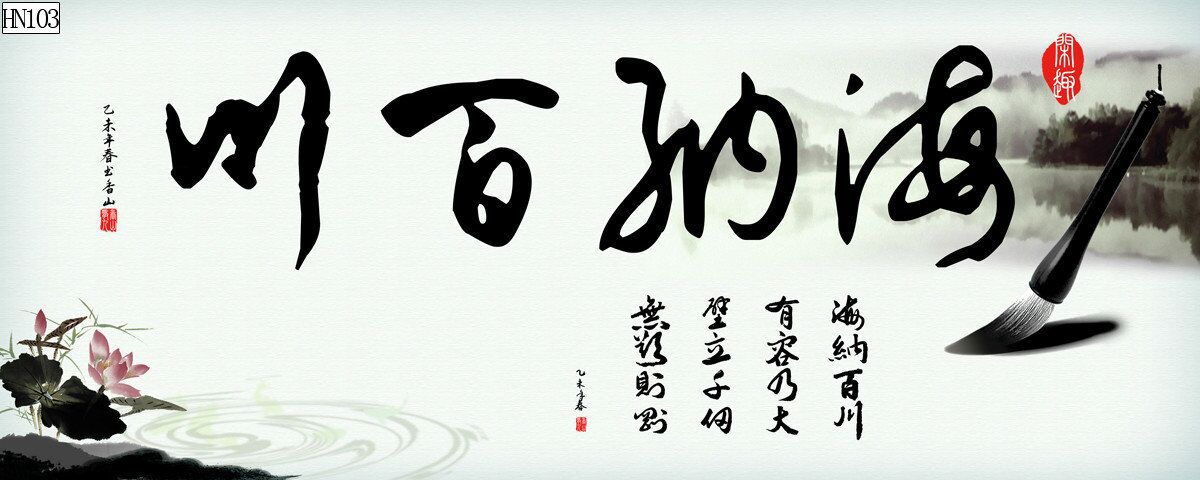 HN103
閑趣
海纳百川
乙未年春书香山
海納百川
有容乃大
壁立千仞
無欲則剛
乙未年春